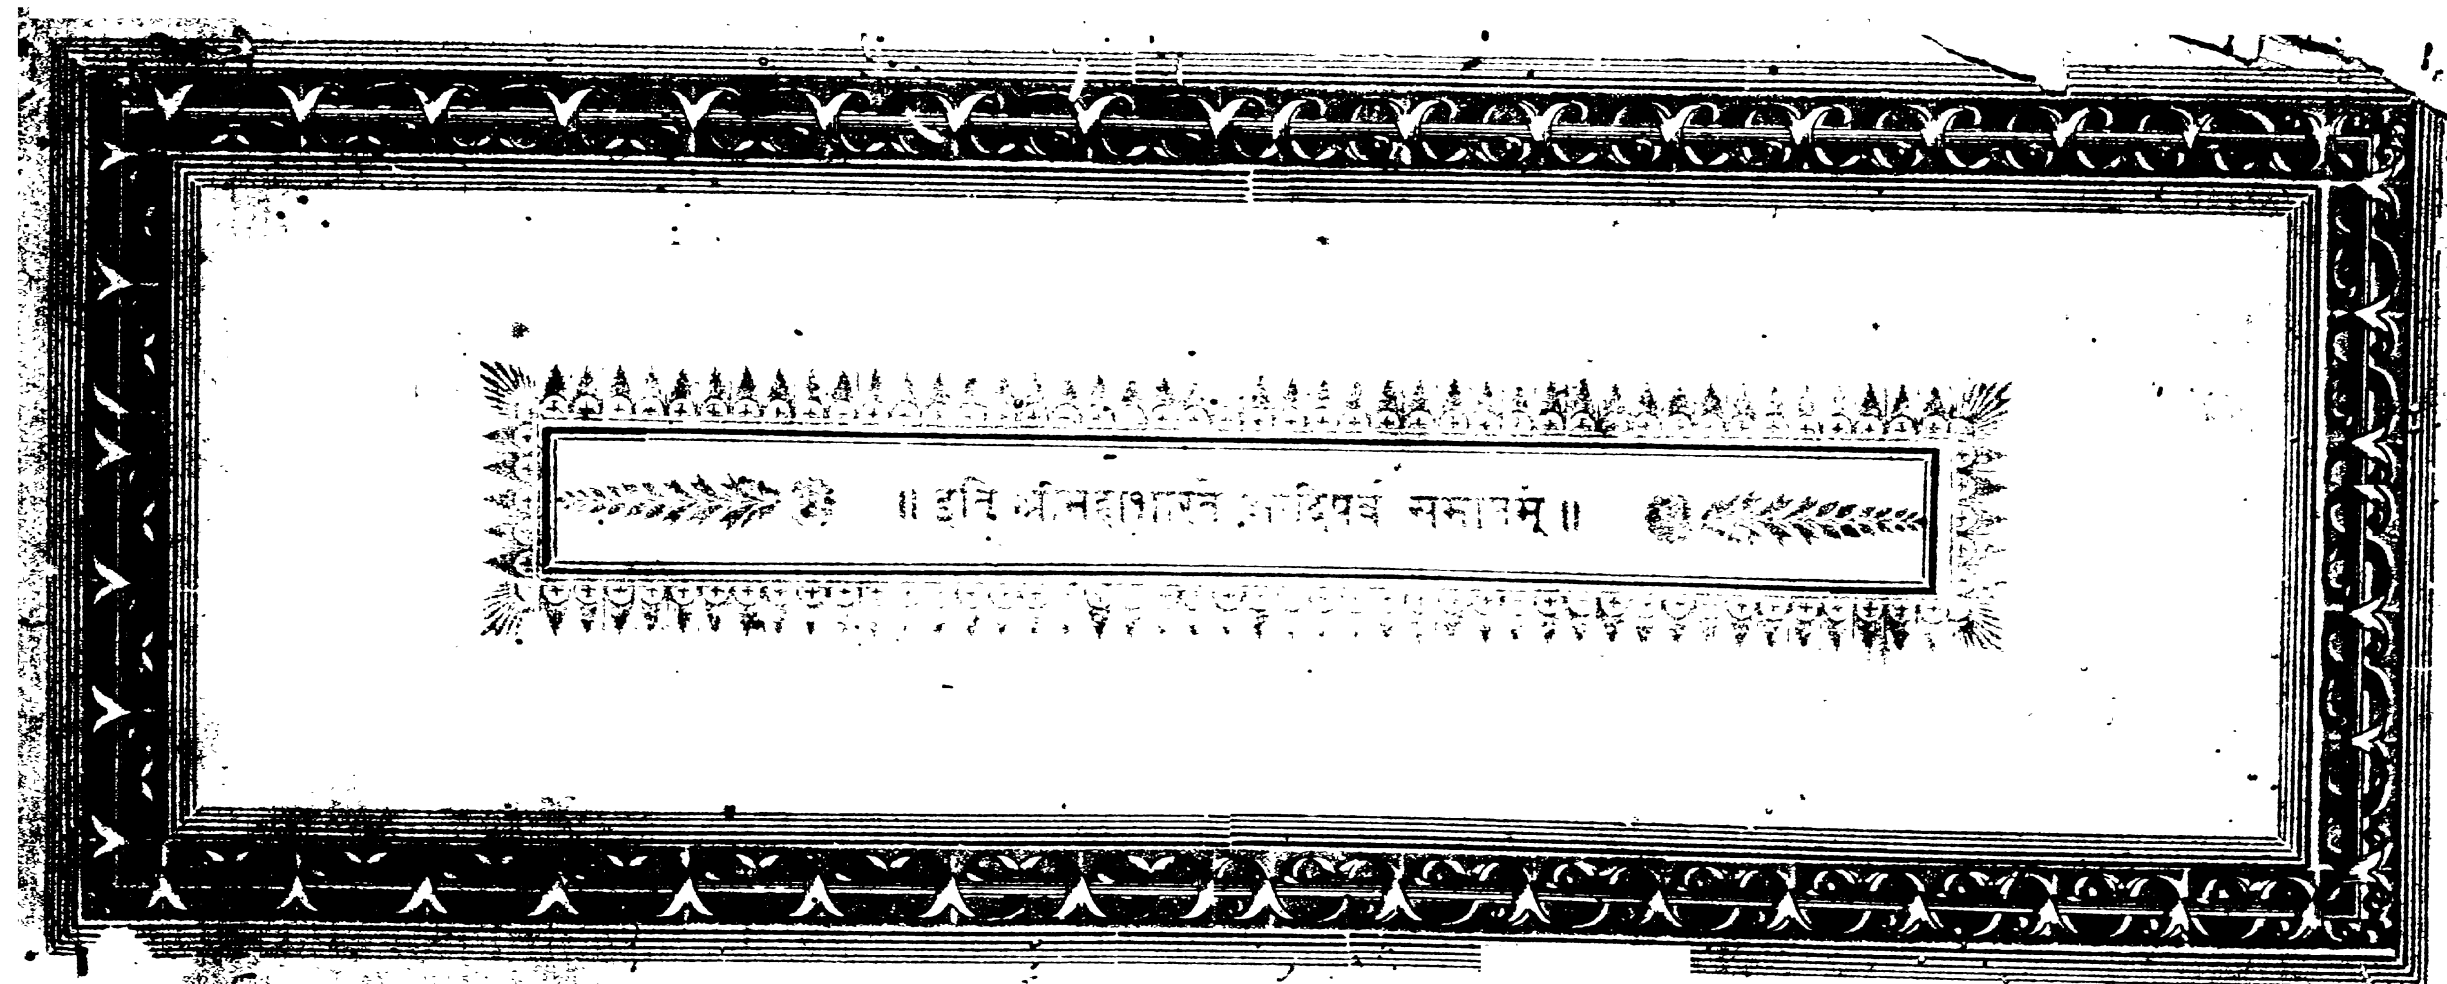 ॥ इति श्रीमहाभारतं आदिपर्व समाप्तम् ॥